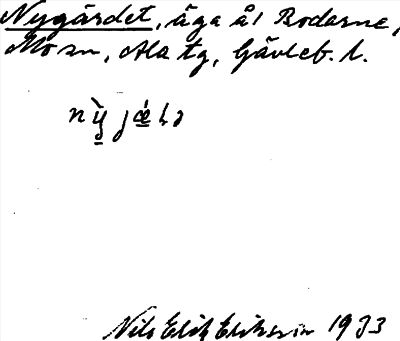 Nygärdet, äga å/ Bodarne,
Mo sn, Ala tg, Gävleb. l.
Nils Erik Eriksson 1933